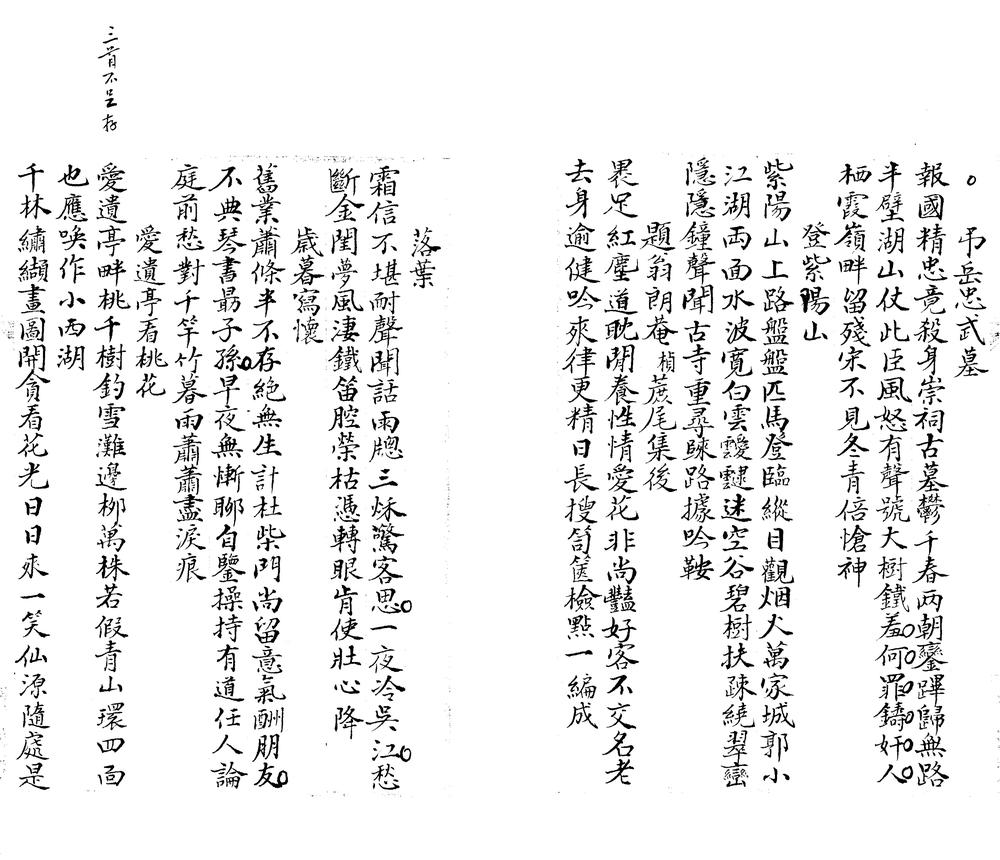 弔岳忠武墓
報國精忠竟殺身崇祠古墓鬱千春两朝鑾蹕歸無路
半壁湖山仗此臣風怒有聲號大樹鐵羞何罪鑄奸人
栖霞嶺畔留殘宋不見冬青倍愴神
登紫陽山
紫陽山上路盤盤匹馬登臨縱目觀烟火萬家城郭小
江湖両面水波寬白雲靉靆迷空谷碧樹扶疎繞翠巒
隱隱鐘聲聞古寺重尋踈路據吟鞍
題翁朗菴楨蔗尾集後
褁足紅塵道眈閒養性情愛花非尚豔好客不交名老
去身逾健吟來律更精日長搜笥篋檢點一編成
落葉
霜信不堪耐聲聞話雨牕三秌驚客思一夜冷吳江愁
斷金閨夢風淒鐵笛腔榮枯憑轉眼肯使壯心降
歲暮寫懷
舊業蕭條半不存絶無生計杜柴門尚留意氣酬朋友
不典琴書勗子孫早夜無慚聊自鑒操持有道任人論
庭前愁對千竿竹暮雨蕭蕭盡淚痕
愛遺亭看桃花
愛遺亭畔桃千樹釣雪灘邊柳萬株若假青山環四面
也應喚作小西湖
千林繡纈畫圖開貪看花光日日來一笑仙源隨處是
三首不足存